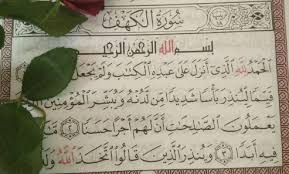 سُورَةُ الْكَهْفِ
بِسْمِ اللَّهِ الرَّحْمَٰنِ الرَّحِيمِ
الْحَمْدُ لِلَّهِ الَّذِي أَنزَلَ عَلَىٰ عَبْدِهِ الْكِتَابَ وَلَمْ يَجْعَل
قَيِّمًا لِّيُنذِرَ بَأْسًا شَدِيدًا مِّن لَّدُنْهُ وَيُبَشِّرَ الْمُؤْمِنِينَ
يَعْمَلُونَ الصَّالِحَاتِ أَنَّ لَهُمْ أَجْرًا حَسَنًا ٢
فِيهِ أَبَدًا ٣ وَيُنذِرَ الَّذِينَ قَالُوا اتَّخَذَ اللَّهُ وَلَدًا